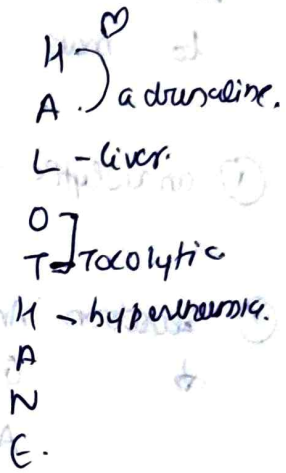 H
A adrenaline.
L - liver.
O
T Tocolytic
H - hyperthermia.
A
N
E.